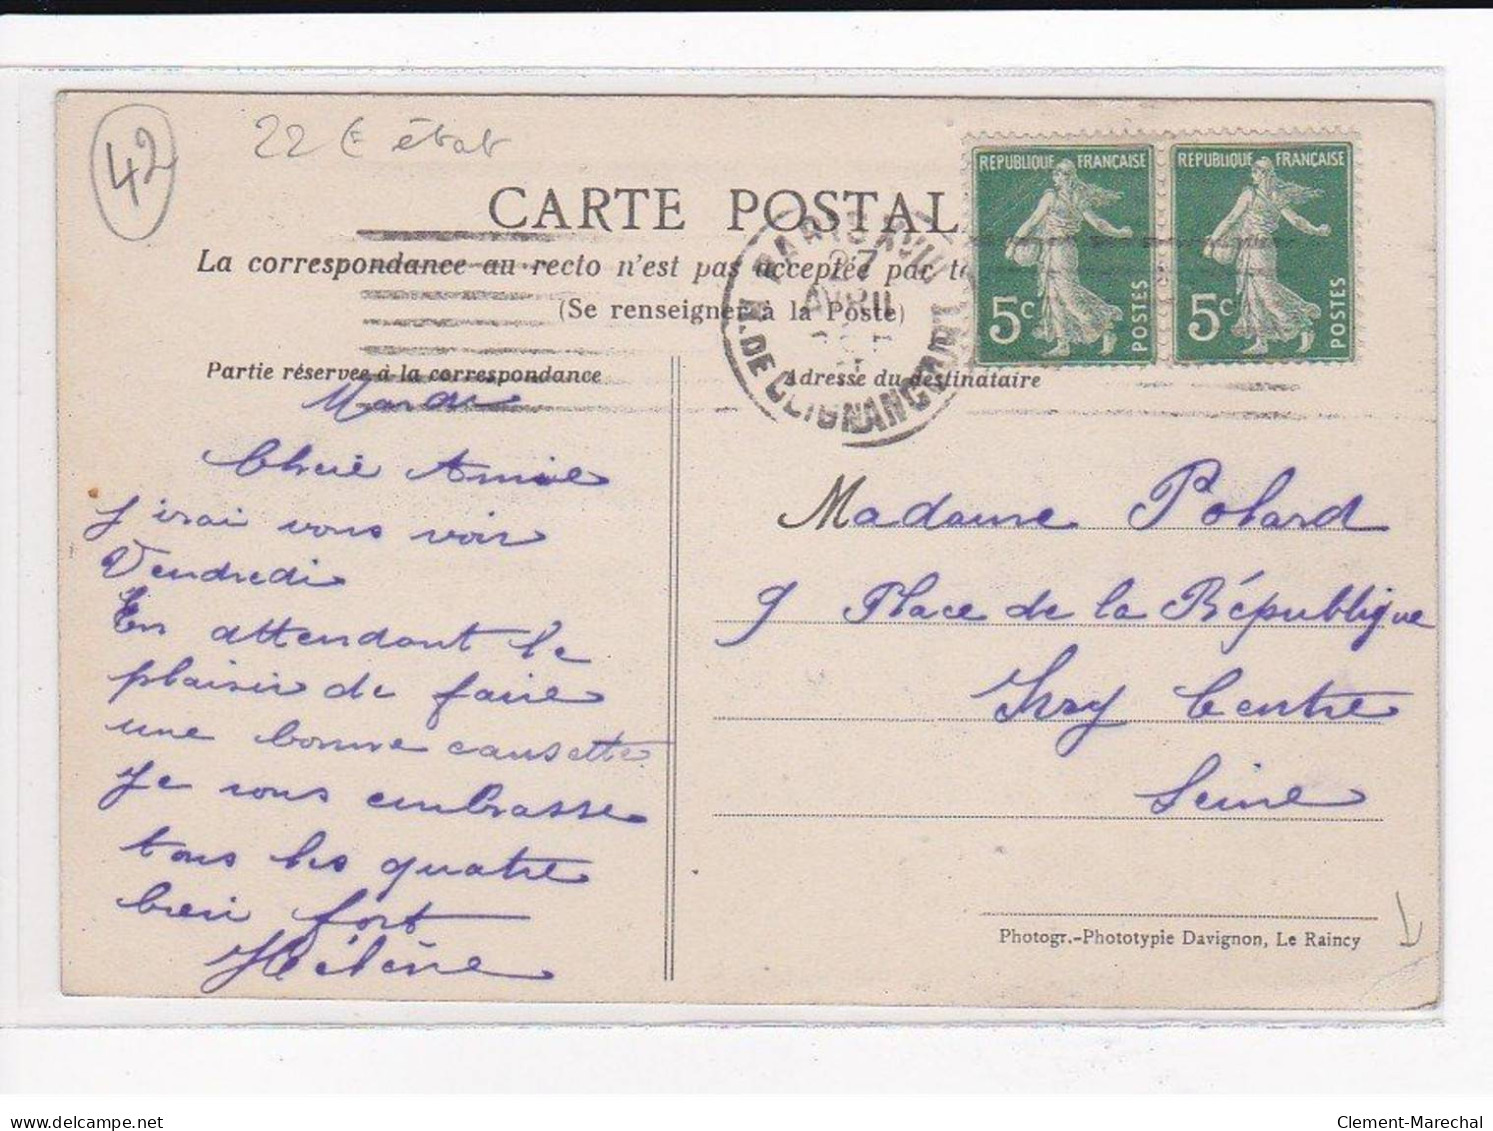 42
22 € état
CARTE POSTAL
La correspondance au recto n'est pas acceptée par t
(Se renseigner à la Poste)
REPUBLIQUE FRANÇAISE
5c POSTES
REPUBLIQUE FRANÇAISE
5c POSTES
PARIS XVIII
27
AVRIL
R. DE CLIGNANCOURT
Partie réservée à la correspondance
Mardi
Chère Amie
J'irai vous voir
Vendredi
En attendant le
plaisir de faire
une bonne causette
Je vous embrasse
tous les quatre
bien fort
Hélène
Adresse du destinataire
Madame Polard
9 Place de la République
Ivry Centre
Seine
Photogr.-Phototypie Davignon, Le Raincy
www.delcampe.net
Clement-Marechal